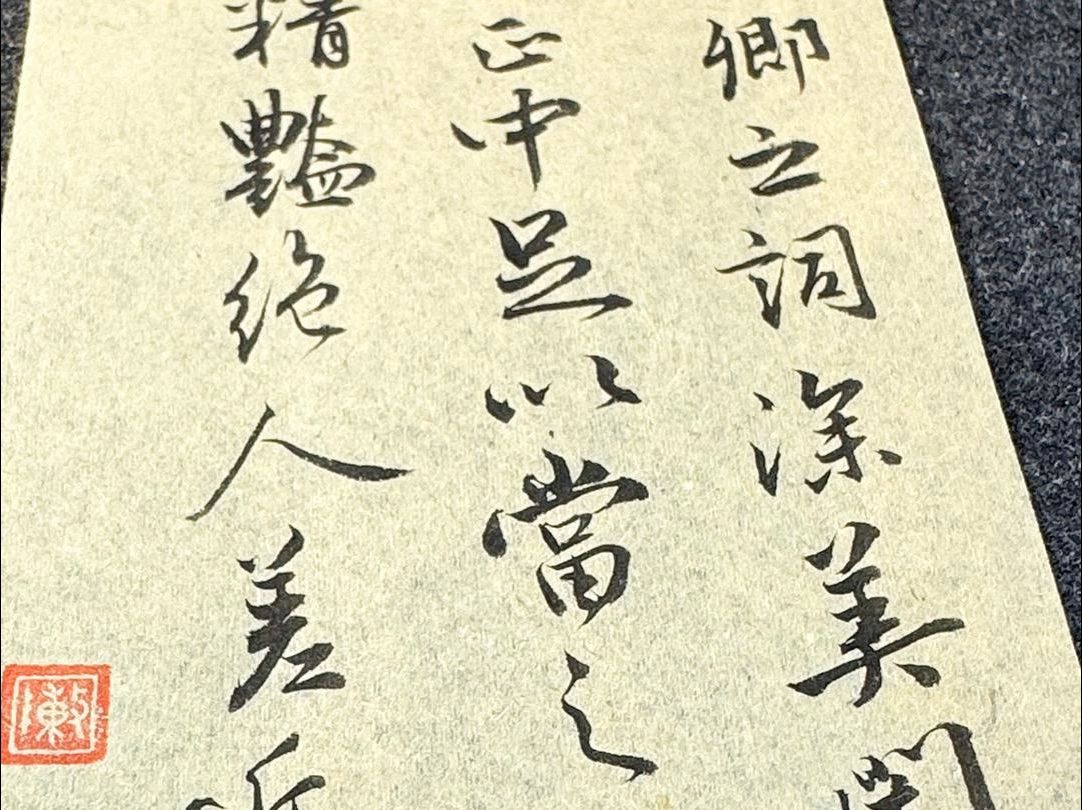 卿之詞深美
正中足以當之
精豔絶人差